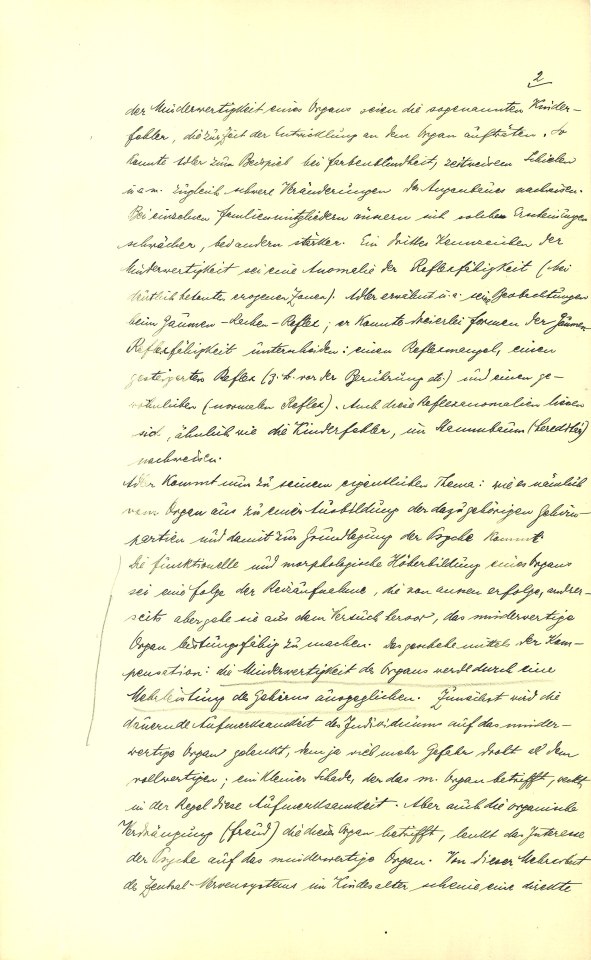 2
der Minderwertigkeit eines Organs seien die sogenannten Kinder-
fehler, die zur Zeit der Entwicklung an dem Organ auftäten. So
konnte Adler zum Beispiel bei Farbenblindheit, zeitweisem Schielen
u.a.m. zugleich schwere Veränderungen des Augenbaues nachweisen.
Bei einzelnen Familienmitgliedern äussern sich solche Erscheinungen
schwächer, bei andern stärker. Ein drittes Kennzeichen der
Minderwertigkeit sei eine Anomalie der Reflexfähigkeit (bei
deutlich betonten erogenen Zonen). Adler erwähnt u.a. seine Beobachtungen
beim Gaumen-Rachen-Reflex; er konnte dreierlei Formen der Gaumen-
Reflexfähigkeit unterscheiden: einen Reflexmangel, einen
gesteigerten Reflex (z.B. vor der Berührung etc.) und einen ge-
wöhnlichen (normalen Reflex). Auch diese Reflexanomalien liessen
sich, ähnlich wie die Kinderfehler, im Stammbaum (hereditär)
nachweisen.
Adler kommt nun zu seinem eigentlichen Thema: wie es nämlich
vom Organ aus zu einer Ausbildung der dazugehörigen Gehirn-
partien und damit zur Grundlegung der Psyche kommt.
Die funktionelle und morphologische Höherbildung eines Organs
sei eine Folge der Reizaufnahme, die von aussen erfolge, andrer-
seits aber gehe sie aus dem Versuch hervor, das minderwertige
Organ leistungsfähig zu machen. Das geschehe mittels der Kom-
pensation: die Minderwertigkeit des Organs werde durch eine
Mehrleistung des Gehirns ausgeglichen. Zunächst wird die
dauernde Aufmerksamkeit des Individiums auf das minder-
wertige Organ gelenkt, dem ja viel mehr Gefahr droht als dem
vollwertigen; ein kleiner Schade, der das m. Organ betrifft, weckt
in der Regel diese Aufmerksamkeit. Aber auch die organische
Verdrängung (Freud) die dieses Organ betrifft, lenkt das Interesse
der Psyche auf das minderwertige Organ. Von dieser Mehrarbeit
des Zentral-Nervensystems im Kindesalter, scheine eine direkte